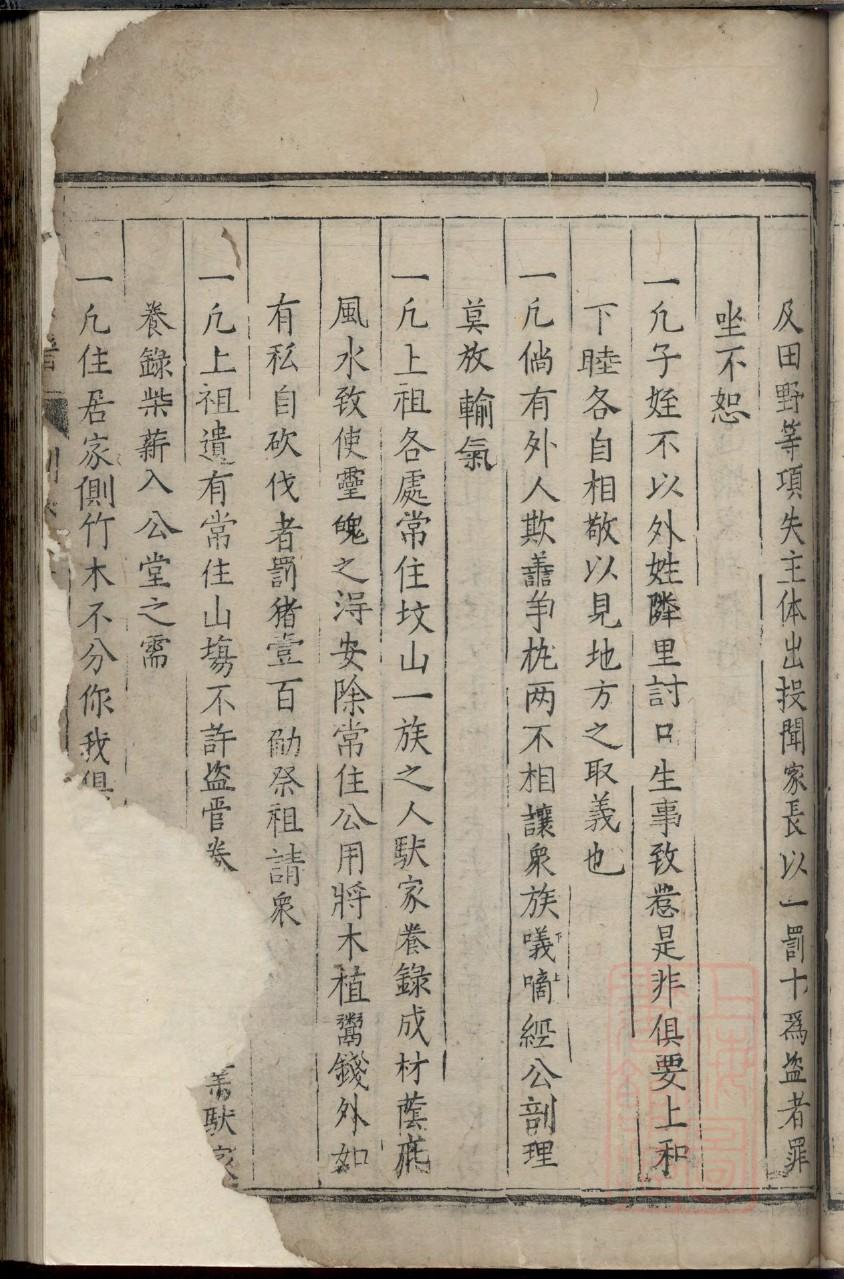 及田野等項失主体出投聞家長以一罰十爲盗者罪
坐不恕
一凢子姪不以外姓隣里討口生事致惹是非俱要上和
下睦各自相敬以見地方之取義也
一凢倘有外人欺善争枕两不相讓衆族嘰嘀經公剖理
下上
莫放輸氣
一凢上祖各處常住坟山一族之人馱家養錄成材蔭庇
風水致使靈魄之淂安除常住公用將木植鬻錢外如
有私自砍伐者罰猪壹百觔祭祖請衆
一凢上祖遺有常住山塲不許盗
養錄柴薪入公堂之需
一凢住居家側竹木不分你我俱
上海圖